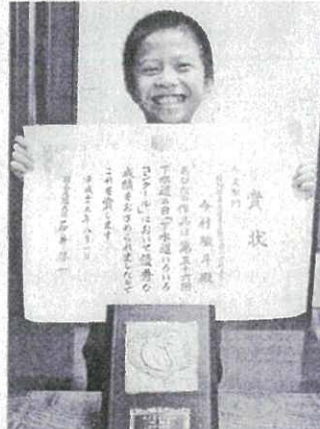 賞状
今村
斗殿
あなたの作品は第五十六回
下水道の日『下水道いろいろ
コンクール』において優秀な
成績をおさめられましたので
これを賞します
平成
年八月一日
大臣 石井啓一